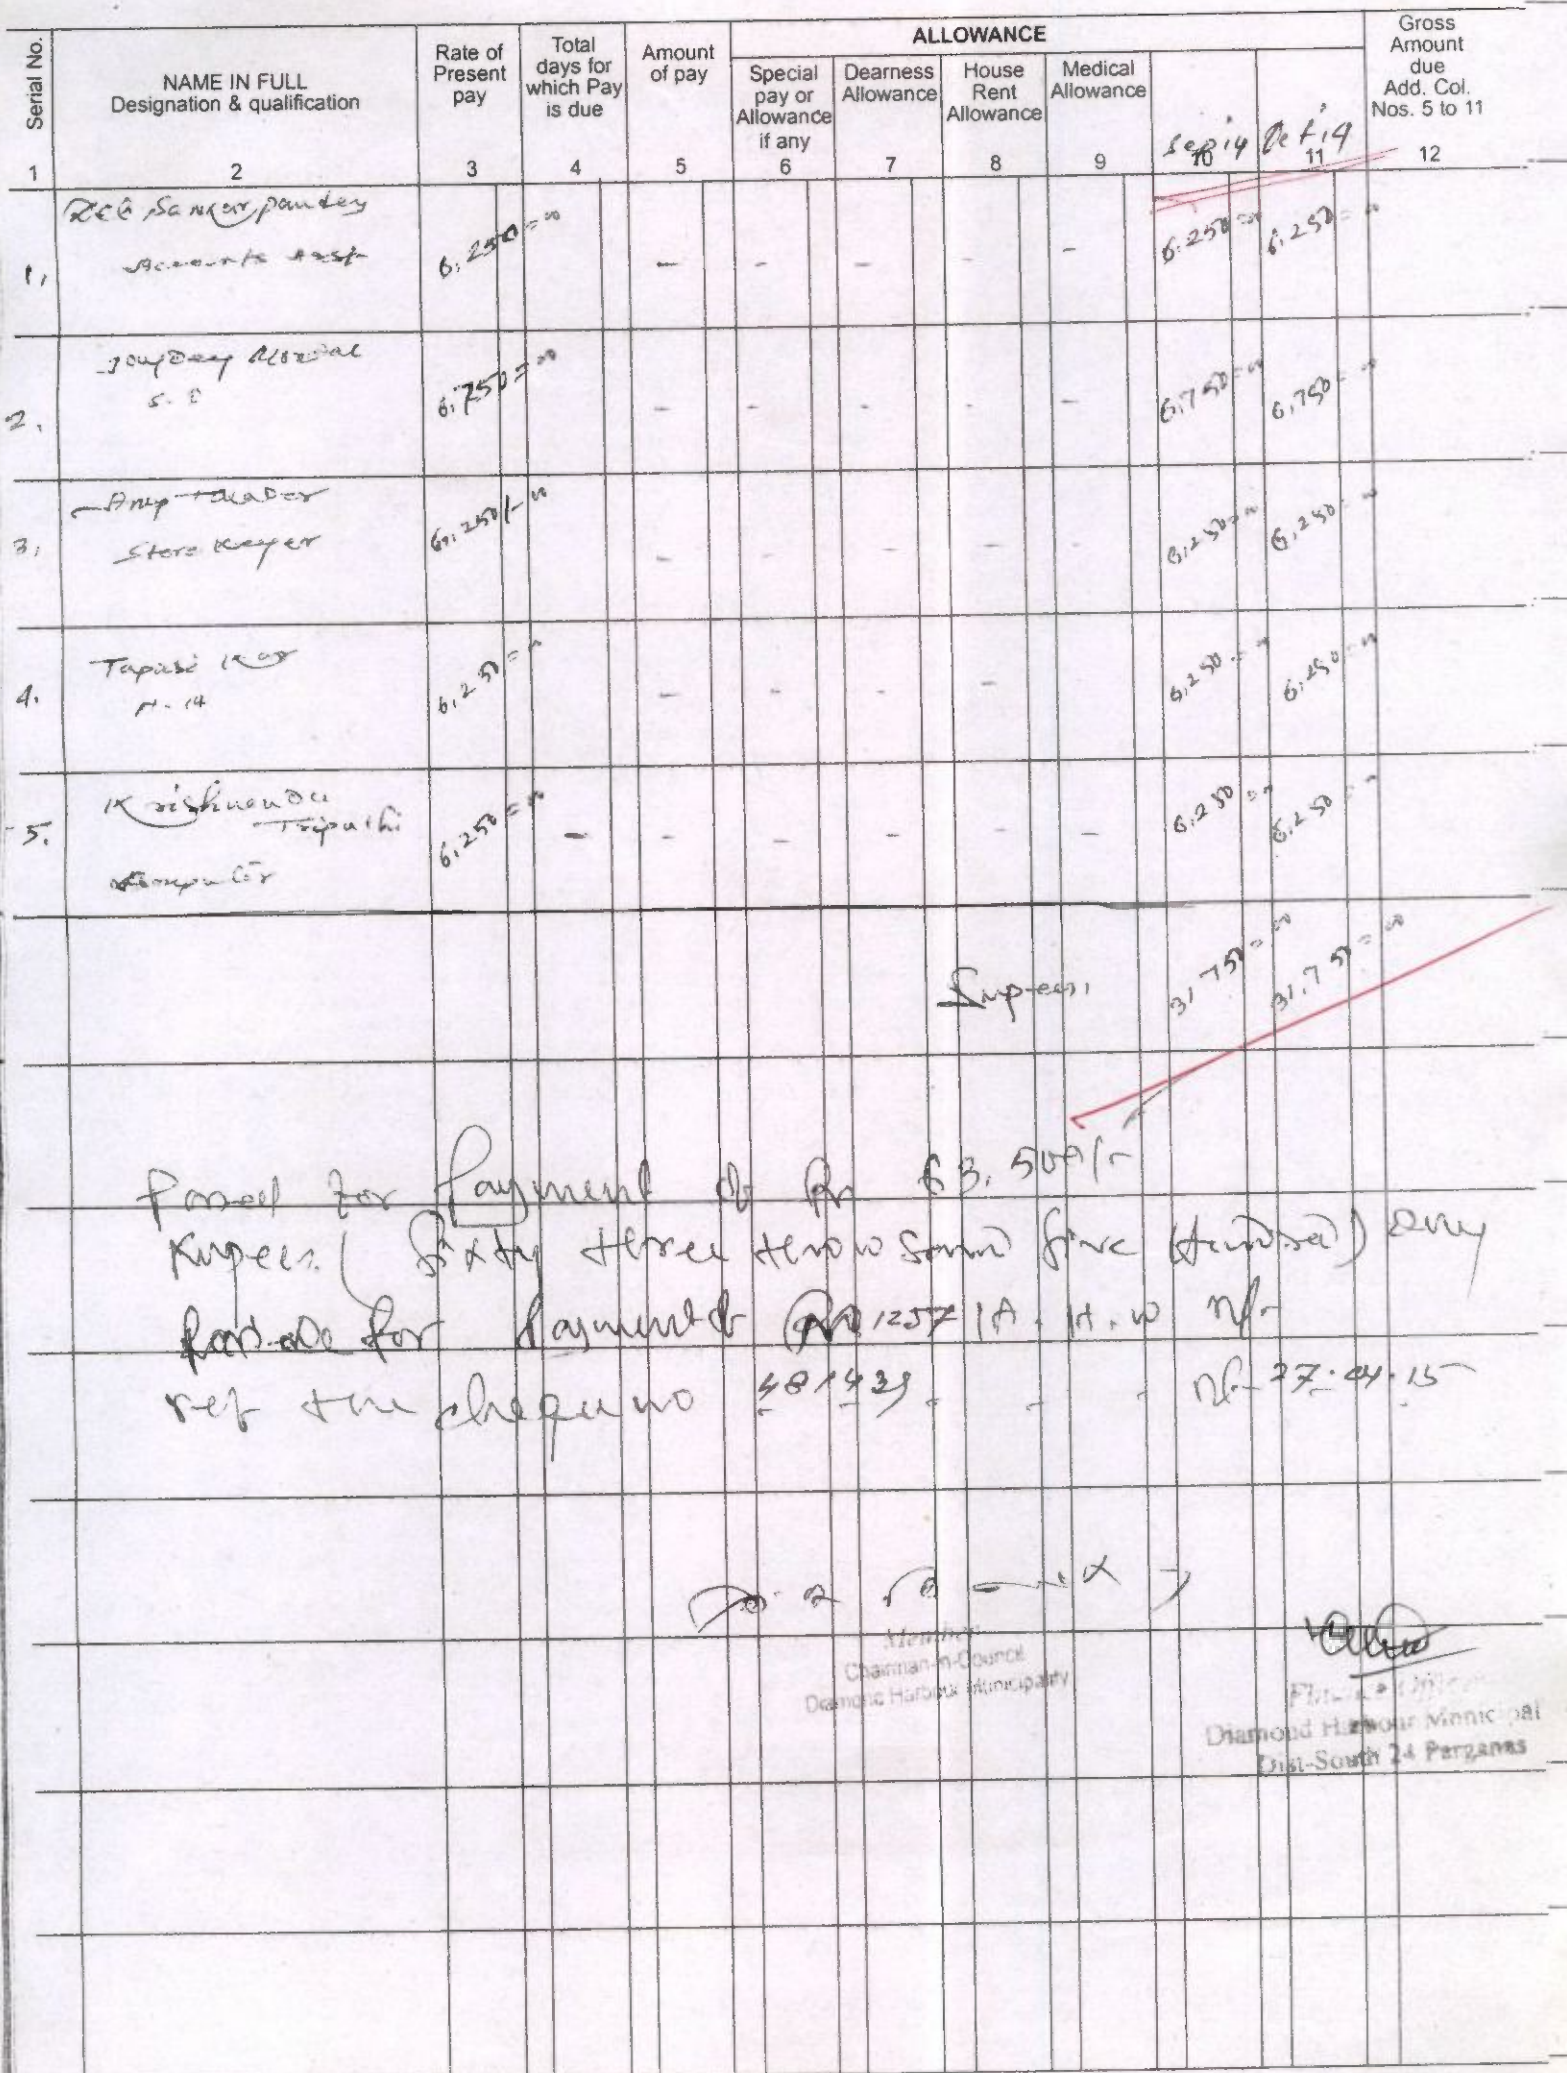 Serial No.
NAME IN FULL
Designation & qualification
Rate of
Present
pay
Total
days for
which Pay
is due
Amount
of pay
ALLOWANCE
Special
pay or
Allowance
if any
Dearness
Allowance
House
Rent
Allowance
Medical
Allowance
Sep 14 Oct 14
Gross
Amount
due
Add. Col.
Nos. 5 to 11
1 2 3 4 5 6 7 8 9 10 11 12
Sankar pandey
Accounts Asst
1. 6,250=00 - - - - - 6,250=00 6,250=00
2. 6,750=00 - - - - - 6,750=00 6,750=00
Anup
Store keeper
3. 6,250/-00 - - - - - 6,250=00 6,250=00
Tapasi Kar
4. 6,250=00 - - - - 6,250=00 6,250=00
Krishnendu
Tripathi
5. 6,250=00 - - - - - - 6,250=00 6,250=00
Computer
Rupees, 31,750=00 31,750=00
Passed for Payment of Rs 63,500/-
Rupees (Sixty three thousand five Hundred) only
for Payment 1257
ref the cheque no 481439 27.04.15
Member
Chairman-in-Council
Diamond Harbour Municipality
Finance Officer
Diamond Harbour Municipal
Dist-South 24 Parganas